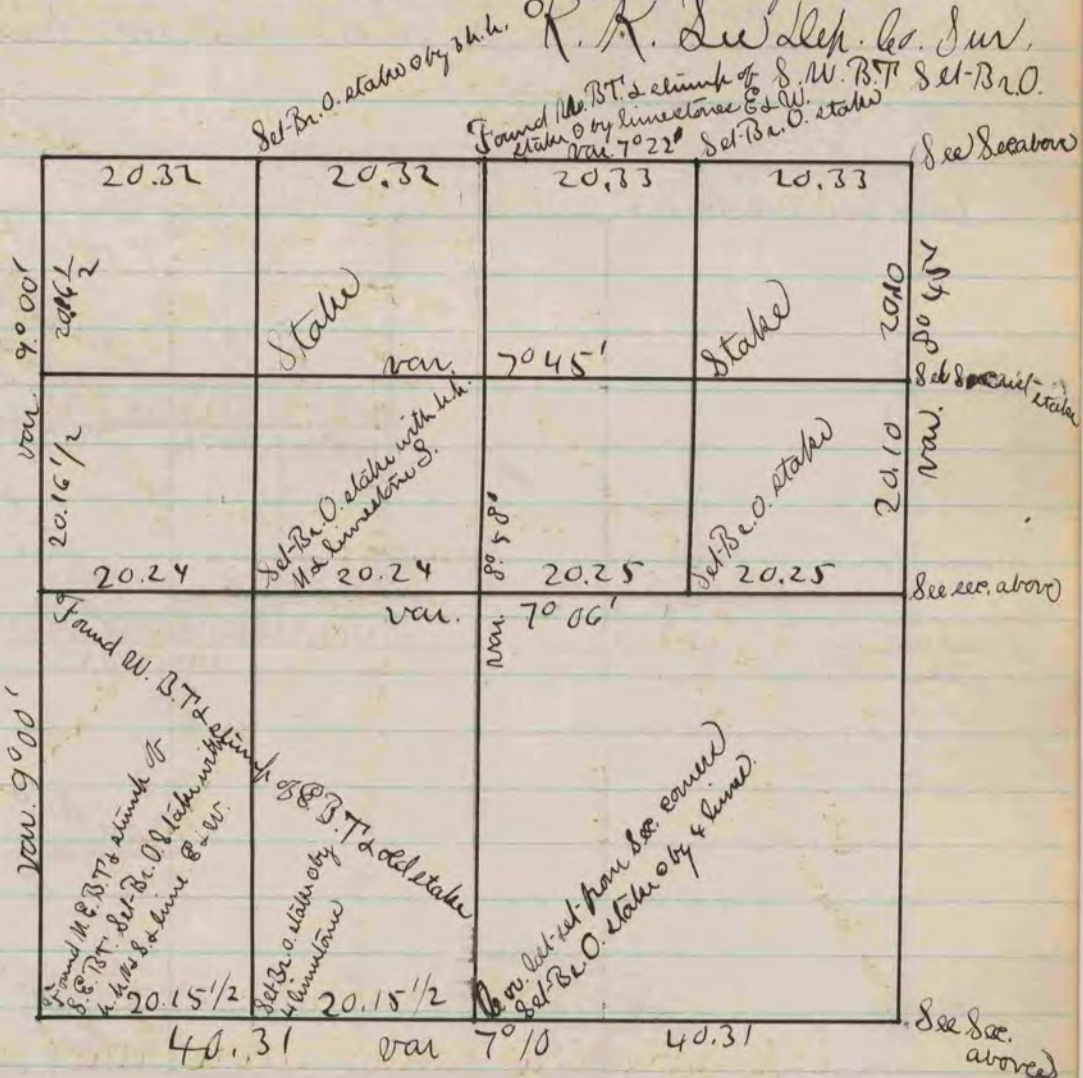 R. R. Lee Dep. Co. Sur.
Set Br. O. stake o by 3 h.h.
Found N. B.T. & stump of S.W. B.T Set-Br.O.
stake o by limestones E & W.
var. 7°22'
Set-Br. O. stake
See Sec above
20.32 20.32 20.33 20.33
var. 9°00'
20.16 1/2
Stake
Stake
20.10
8° 45'
var. 7°45'
Set stake
20.16 1/2
Set-Br. O. stake with h.h.
N & limestone S.
8° 58'
Set-Br. O. stake
20.10
var.
20.24 20.24 20.25 20.25
See sec. above
var. 7° 06'
var.
Found W. B.T. & stump of E B.T. & old stake
var. 9°00'
Found N.E. B.T. & stump of
S.E. B.T. Set-Br. O. Stake with
h.h. N & S. & lime E & W.
Set Br. O. stake o by
4 limestone
set from Sec. corners
Set-Br. O. stake o by 4 lime.
20.15 1/2 20.15 1/2
40.31 var 7°10 40.31
See Sec.
above